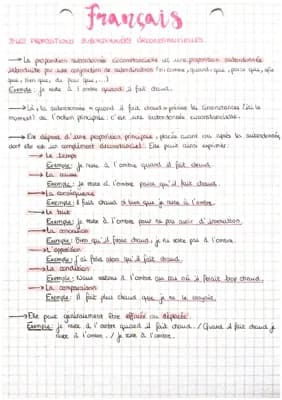 Français
LES PROPOSITIONS SUBORDONNÉES CIRCONSTANCIELLES
→ La proposition subordonnée circonstancielle est une proposition subordonnée
introduite par une conjonction de subordination (si, comme, quand, que, parce que, afin
que, bien que, de peur que, ...)
Exemple: je reste à l'ombre quand il fait chaud.
→ Ici, la subordonnée « quand il fait chaud » précise les circonstances (ici le
moment) de l'action principale: c'est une subordonnée circonstancielle.
→ Elle dépend d'une proposition principale, placée avant ou après la subordonnée,
dont elle est un complément circonstanciel. Elle peut ainsi exprimer:
→ Le temps
Exemple: je reste à l'ombre quand il fait chaud.
→ La cause
Exemple: je reste à l'ombre parce qu'il fait chaud.
→ La conséquence
Exemple: Il fait chaud si bien que je reste à l'ombre.
→ Le but
Exemple: je reste à l'ombre pour ne pas avoir d'insolation.
→ La concession
Exemple: Bien qu'il fasse chaud, je ne reste pas à l'ombre.
→ L'opposition
Exemple: j'ai froid alors qu'il fait chaud.
→ La condition
Exemple: Nous restons à l'ombre au cas où il ferait trop chaud.
→ La comparaison
Exemple: Il fait plus chaud que je ne le croyais.
→ Elle peut généralement être effacée ou déplacée.
Exemple: je reste à l'ombre quand il fait chaud. / Quand il fait chaud je
reste à l'ombre. / je reste à l'ombre.